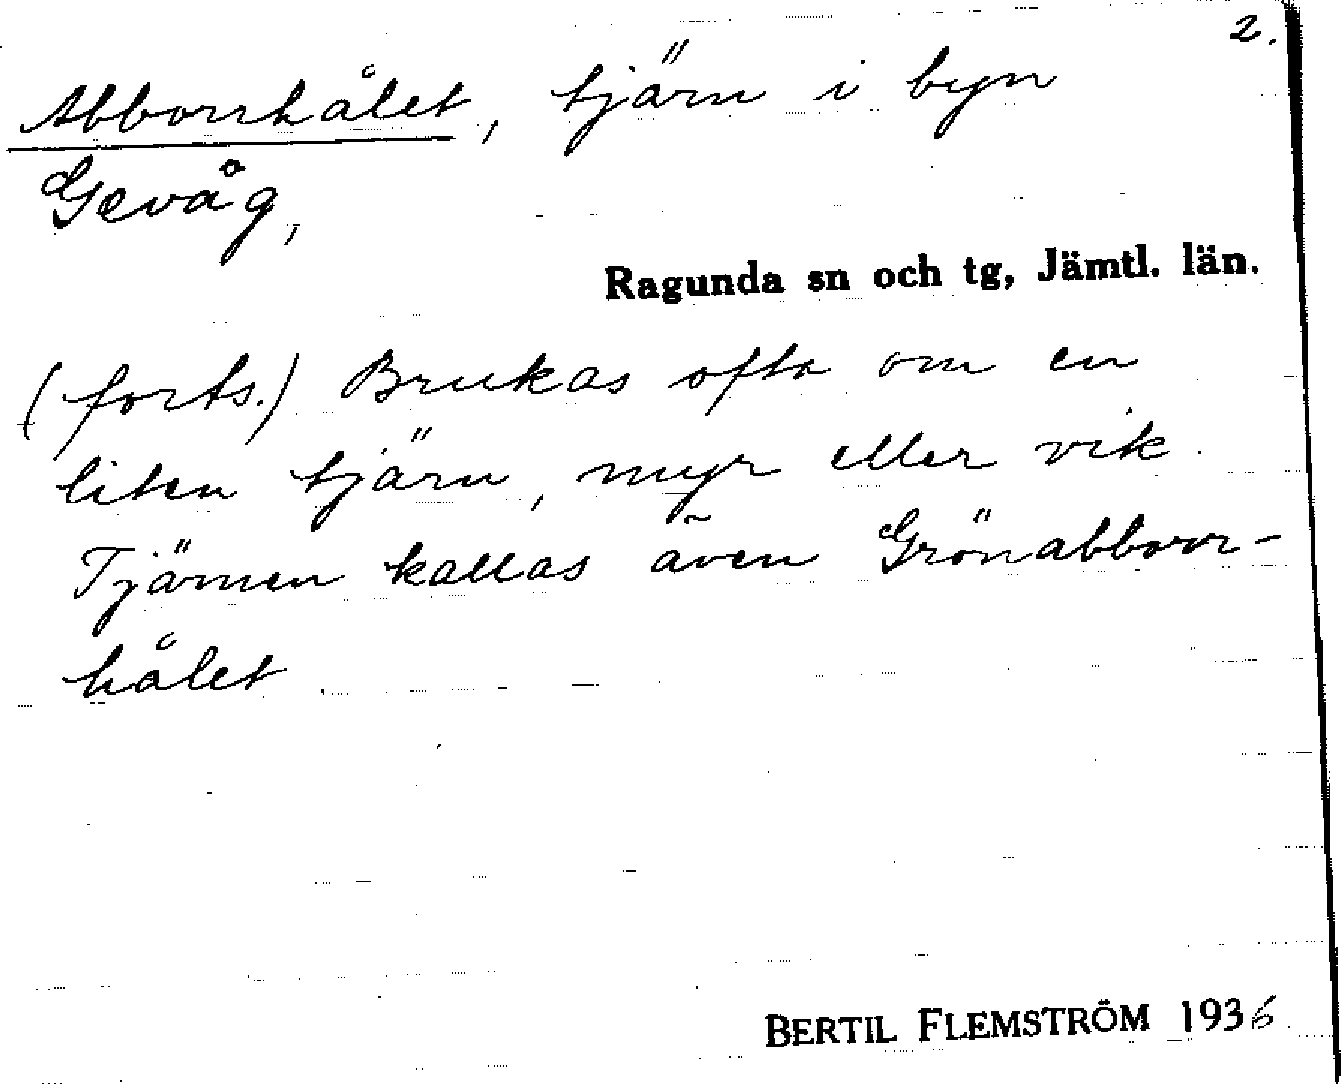 2.
Abborrhålet, tjärn i byn
Gevåg,
Ragunda sn och tg, Jämtl. län.
(forts.) Brukas ofta om en
liten tjärn, myr eller vik.
Tjärnen kallas även Grönabborr-
hålet
BERTIL FLEMSTRÖM 1936